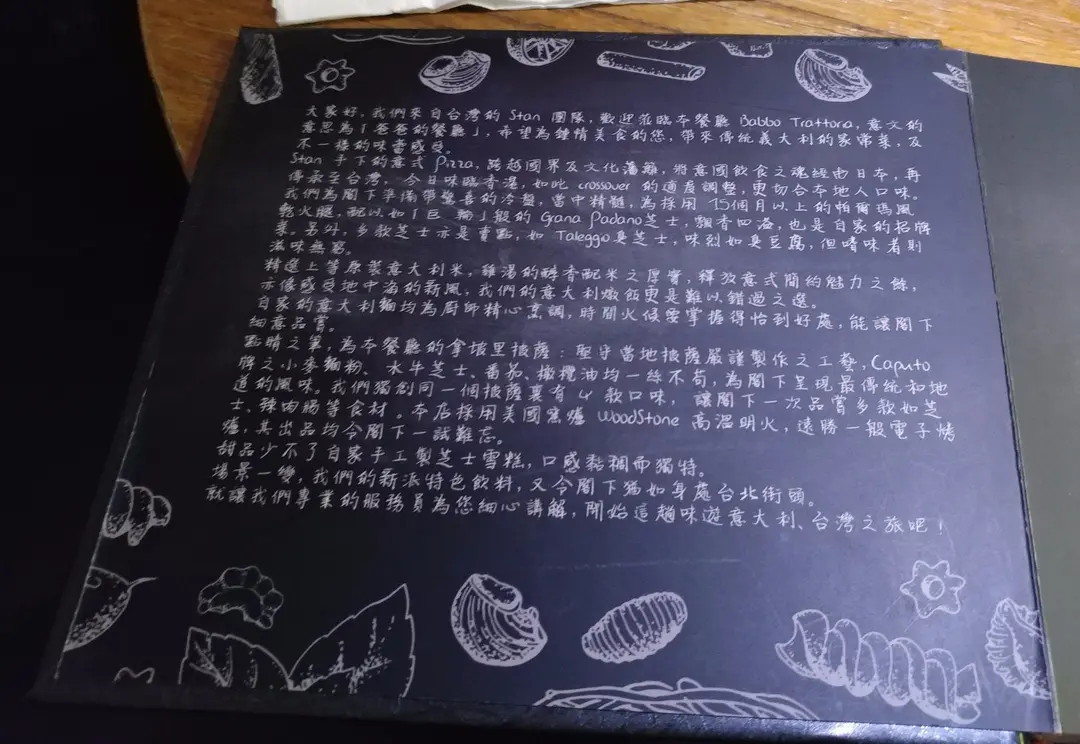 大家好，我們來自台灣的 Stan 團隊，歡迎蒞臨本餐廳 Babbo Trattoria，意文的
意思為「爸爸的餐廳」，希望為鍾情美食的您，帶來傳統義大利的家常菜，及
不一樣的味蕾感受。
Stan 手下的意式 Pizza，跨越國界及文化藩籬，將意國飲食之魂經由日本，再
傳承至台灣，今日味臨香港，如此 crossover 的適度調整，更切合本地人口味。
我們為閣下準備帶驚喜的冷盤，當中精髓，為採用 15個月以上的帕爾瑪風
乾火腿，配以如「巨輪」般的 Grana Padano芝士，飄香四溢，也是自家的招牌
菜。另外，多款芝士亦是賣點，如 Taleggio臭芝士，味烈如臭豆腐，但嗜味者則
滋味無窮。
精選上等原裝意大利米，雞湯的醇香配米之厚實，釋放意式簡約魅力之餘，
亦像感受地中海的新風，我們的意大利燉飯更是難以錯過之選。
自家的意大利麵均為廚師精心烹調，時間火候要掌握得恰到好處，能讓閣下
細意品嘗。
點睛之筆，為本餐廳的拿坡里披薩：堅守當地披薩嚴謹製作之工藝，Caputo
牌之小麥麵粉、水牛芝士、番茄、橄欖油均一絲不苟，為閣下呈現最傳統和地
道的風味。我們獨創同一個披薩裏有 4 款口味，讓閣下一次品嘗多款如芝
士、辣肉腸等食材。本店採用美國窯爐 WoodStone 高溫明火，遠勝一般電子烤
爐，其出品均令閣下一試難忘。
甜品少不了自家手工製芝士雪糕，口感黏稠而獨特。
場景一變，我們的新派特色飲料，又令閣下猶如身處台北街頭。
就讓我們專業的服務員為您細心講解，開始這趟味遊意大利、台灣之旅吧！